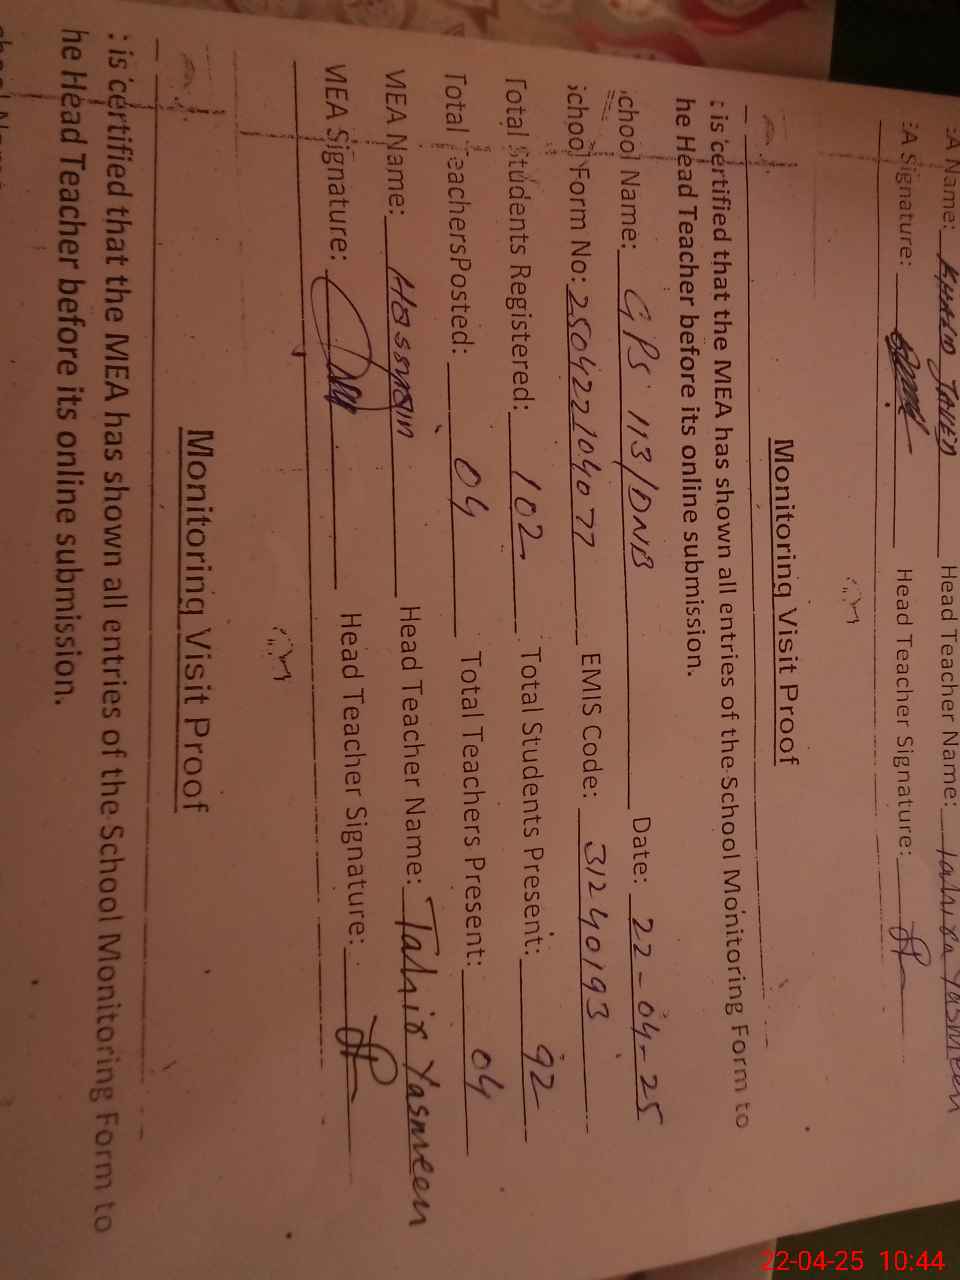 :A Name: Khalid Javed Head Teacher Name: Tahira Yasmeen
:A Signature: Head Teacher Signature:
Monitoring Visit Proof
: is certified that the MEA has shown all entries of the School Monitoring Form to
he Head Teacher before its online submission.
chool Name: GPS 113/DNB Date: 22-04-25
School Form No: 250422104077 EMIS Code: 31240193
Total Students Registered: 102 Total Students Present: 92
Total TeachersPosted: 04 Total Teachers Present: 04
MEA Name: Hassnain Head Teacher Name: Tahir Yasmeen
MEA Signature: Head Teacher Signature:
Monitoring Visit Proof
: is certified that the MEA has shown all entries of the School Monitoring Form to
he Head Teacher before its online submission.
22-04-25 10:44